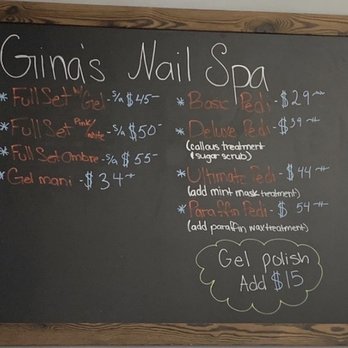 Gina's Nail Spa
* Full Set w/ Gel - s/a $45
* Full Set Pink/White - s/a $50
* Full Set Ombre - s/a $55
* Gel mani - $34
* Basic Pedi - $29
* Deluxe Pedi - $39
(callous treatment
& sugar scrub)
* Ultimate Pedi - $44
(add mint mask treatment)
* Paraffin Pedi - $54
(add paraffin wax treatment)
Gel polish
Add $15